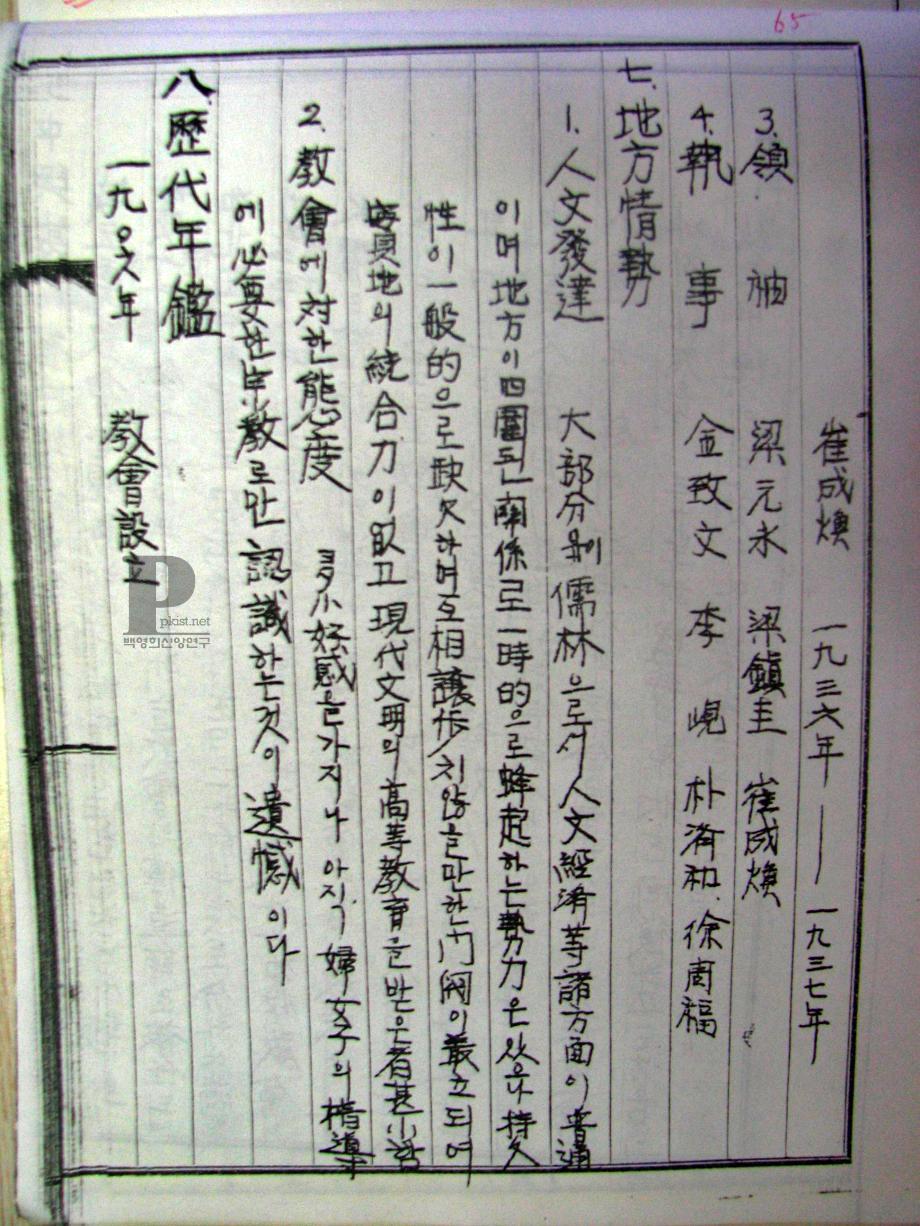 65
崔成煥 一九三六年 —— 一九三七年
3. 領袖 梁元永 梁鎭圭 崔成煥
4. 執事 金致文 李峴 朴済和、徐周福
七. 地方情勢
1. 人文發達 大部分 儒林으로서 人文経済等諸方面이 普通
이며 地方이 四圍된 関係로 一時的으로 蜂起하는 勢力은 있으나 持久
性이 一般的으로 缺欠하며 互相 讓步치 않을만한 門閥이 叢立되여
地의 統合力이 없고 現代文明의 高等教育을 받은 者 甚小
2. 教會에 対한 態度 多少 好感을 가지나 아직 婦女子의 指導
에 必要한 宗教로만 認識하는 것이 遺憾이다
八. 歷代年鑑
一九〇六年 教會設立
P pkist.net
백영희신앙연구